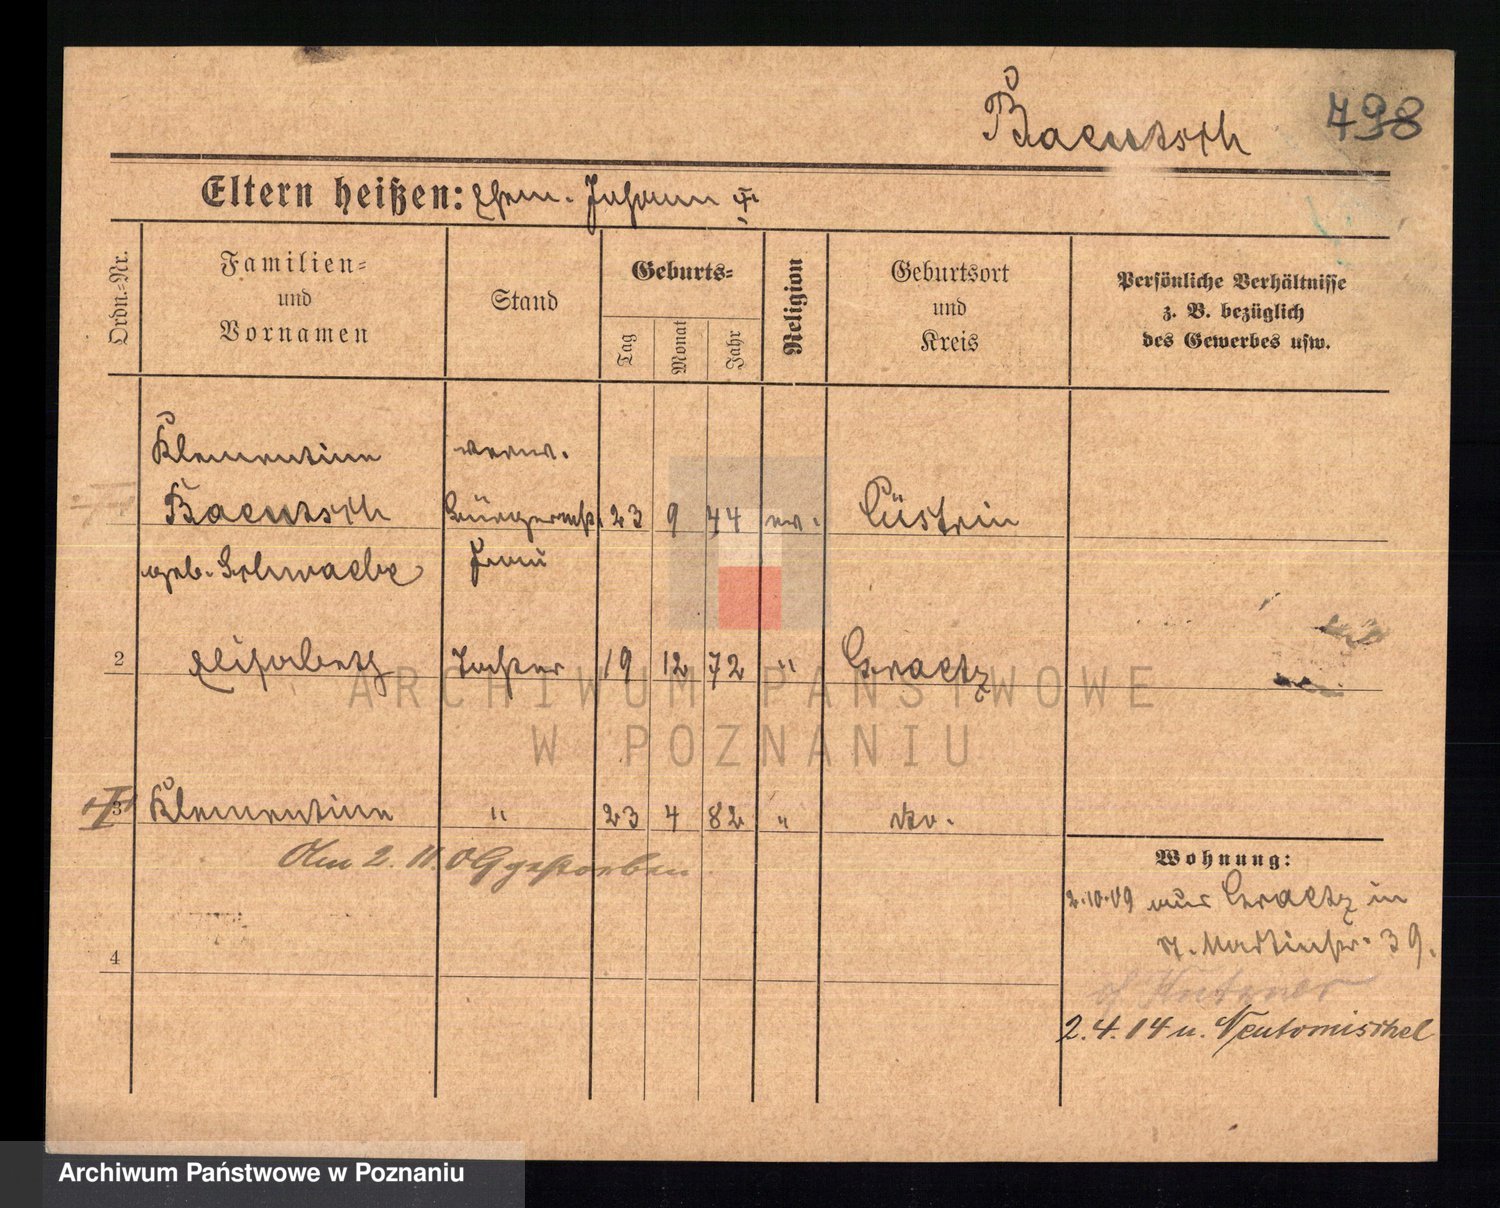 Baentsch 798
Eltern heißen: Ehem. Johann
Ordn.=Nr.
Familien=
und
Vornamen
Stand
Geburts=
Tag
Monat
Jahr
Religion
Geburtsort
und
Kreis
Persönliche Verhältnisse
z. B. bezüglich
des Gewerbes usw.
Klementine verw.
Baentsch Bürgermstr. 23 9 44 ev. Cüstrin
geb. Schwaebe Frau
2 Elisabeth Tochter 19 12 72 " Graetz
3 Klementine " 23 4 82 " do.
Am 2. 11. 09 gestorben
Wohnung:
2.10.09 aus Graetz in
St. Martinstr. 39.
4
2.4.14 n. Neutomischel
ARCHIWUM PAŃSTWOWE
W POZNANIU
Archiwum Państwowe w Poznaniu